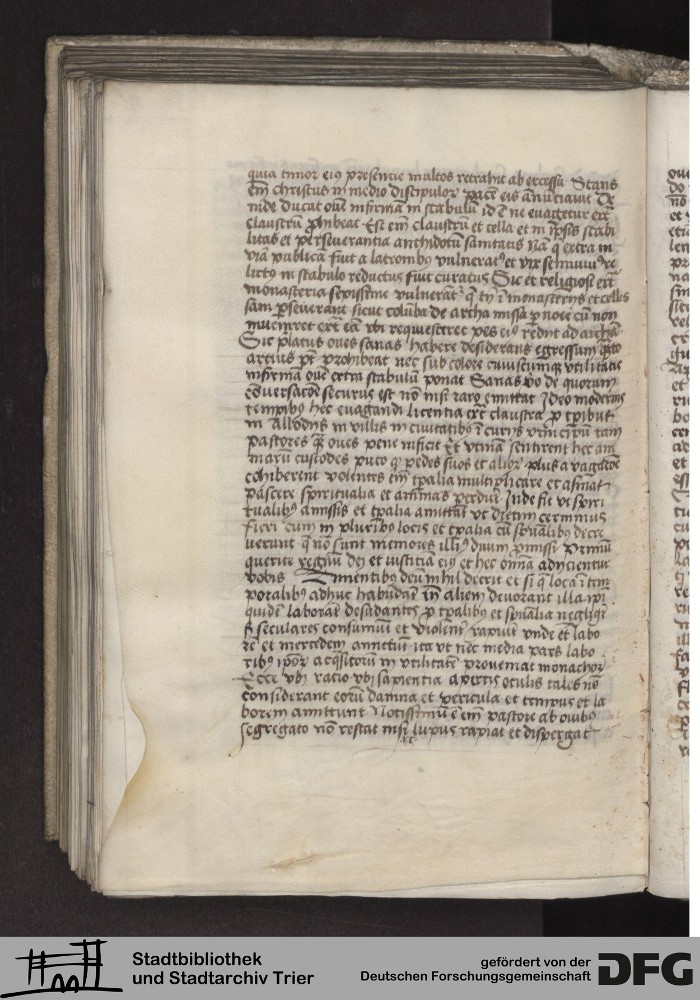 quia timor eius presentie multos retrahit ab excessu Stans
em christus in medio discipulor pacem eis annuciavit De
inde ducat ouem infirmam in stabulum id e ne euagetur extra
claustru prohibeat Est em claustru et cella et in ipsis stabi
litas et perseuerantia antidotum sanitatis Nam q extra in
via publica fuit a latronibus vulneratus et vix semiuiuus re
lictus in stabulo reductus fuit curatus Sic et religiosi extra
monasteria sepissime vulnerat q tn i monasterijs et cellis
sani perseuerant sicut columba de archa missa p noe cum non
inueniret extra eam vbi requiesceret pes eius redijt ad archam
Sic prelatus oues sanas habere desiderans egressum quato
artius pt prohibeat nec sub colore cuiuscumque vtilitatis
infirmam ouem extra stabulum ponat Sanas vo de quorum
conuersacione securus est non nisi raro emittat Ideo modernis
temporibus hec euagandi licentia extra claustra
in allodijs in villis in ciuitatibus i curijs principum tam
pastores qm oues pene inficit Et vtinam sentirent hec ani
marum custodes puto q pedes suos et alior plus a vagacione
cohiberent volentes em tpalia multiplicare et
pascere spiritualia et animas perdunt Inde fit vt spiri
tualibus amissis et tpalia amittant vt dietim cernimus
fieri cum in pluribus locis et tpalia cum spualibus decre
uerunt q non sunt memores illius diuini promissi Primum
querite regnum dei et iusticiam eius et hec omnia adijcientur
vobis Timentibus deum nihil deerit et si q loca i tem
poralibus adhuc habundant alieni deuorant illa ipsi
quidem laborant desudantes p tpalibus et spualia negligunt
seculares consumunt et violenter rapiunt vnde et labo
rem et mercedem amittunt ita vt nec media pars labo
ribus ipor acquisitorum in vtilitatem proueniat monachor
Ecce vbi ratio vbi sapientia apertis oculis tales non
considerant eorum damna et pericula et tempus et la
borem amittunt Notissimum e em pastore ab ouibus
segregato non restat nisi lupus rapiat et dispergat
Stadtbibliothek
und Stadtarchiv Trier
gefördert von der
Deutschen Forschungsgemeinschaft
DFG